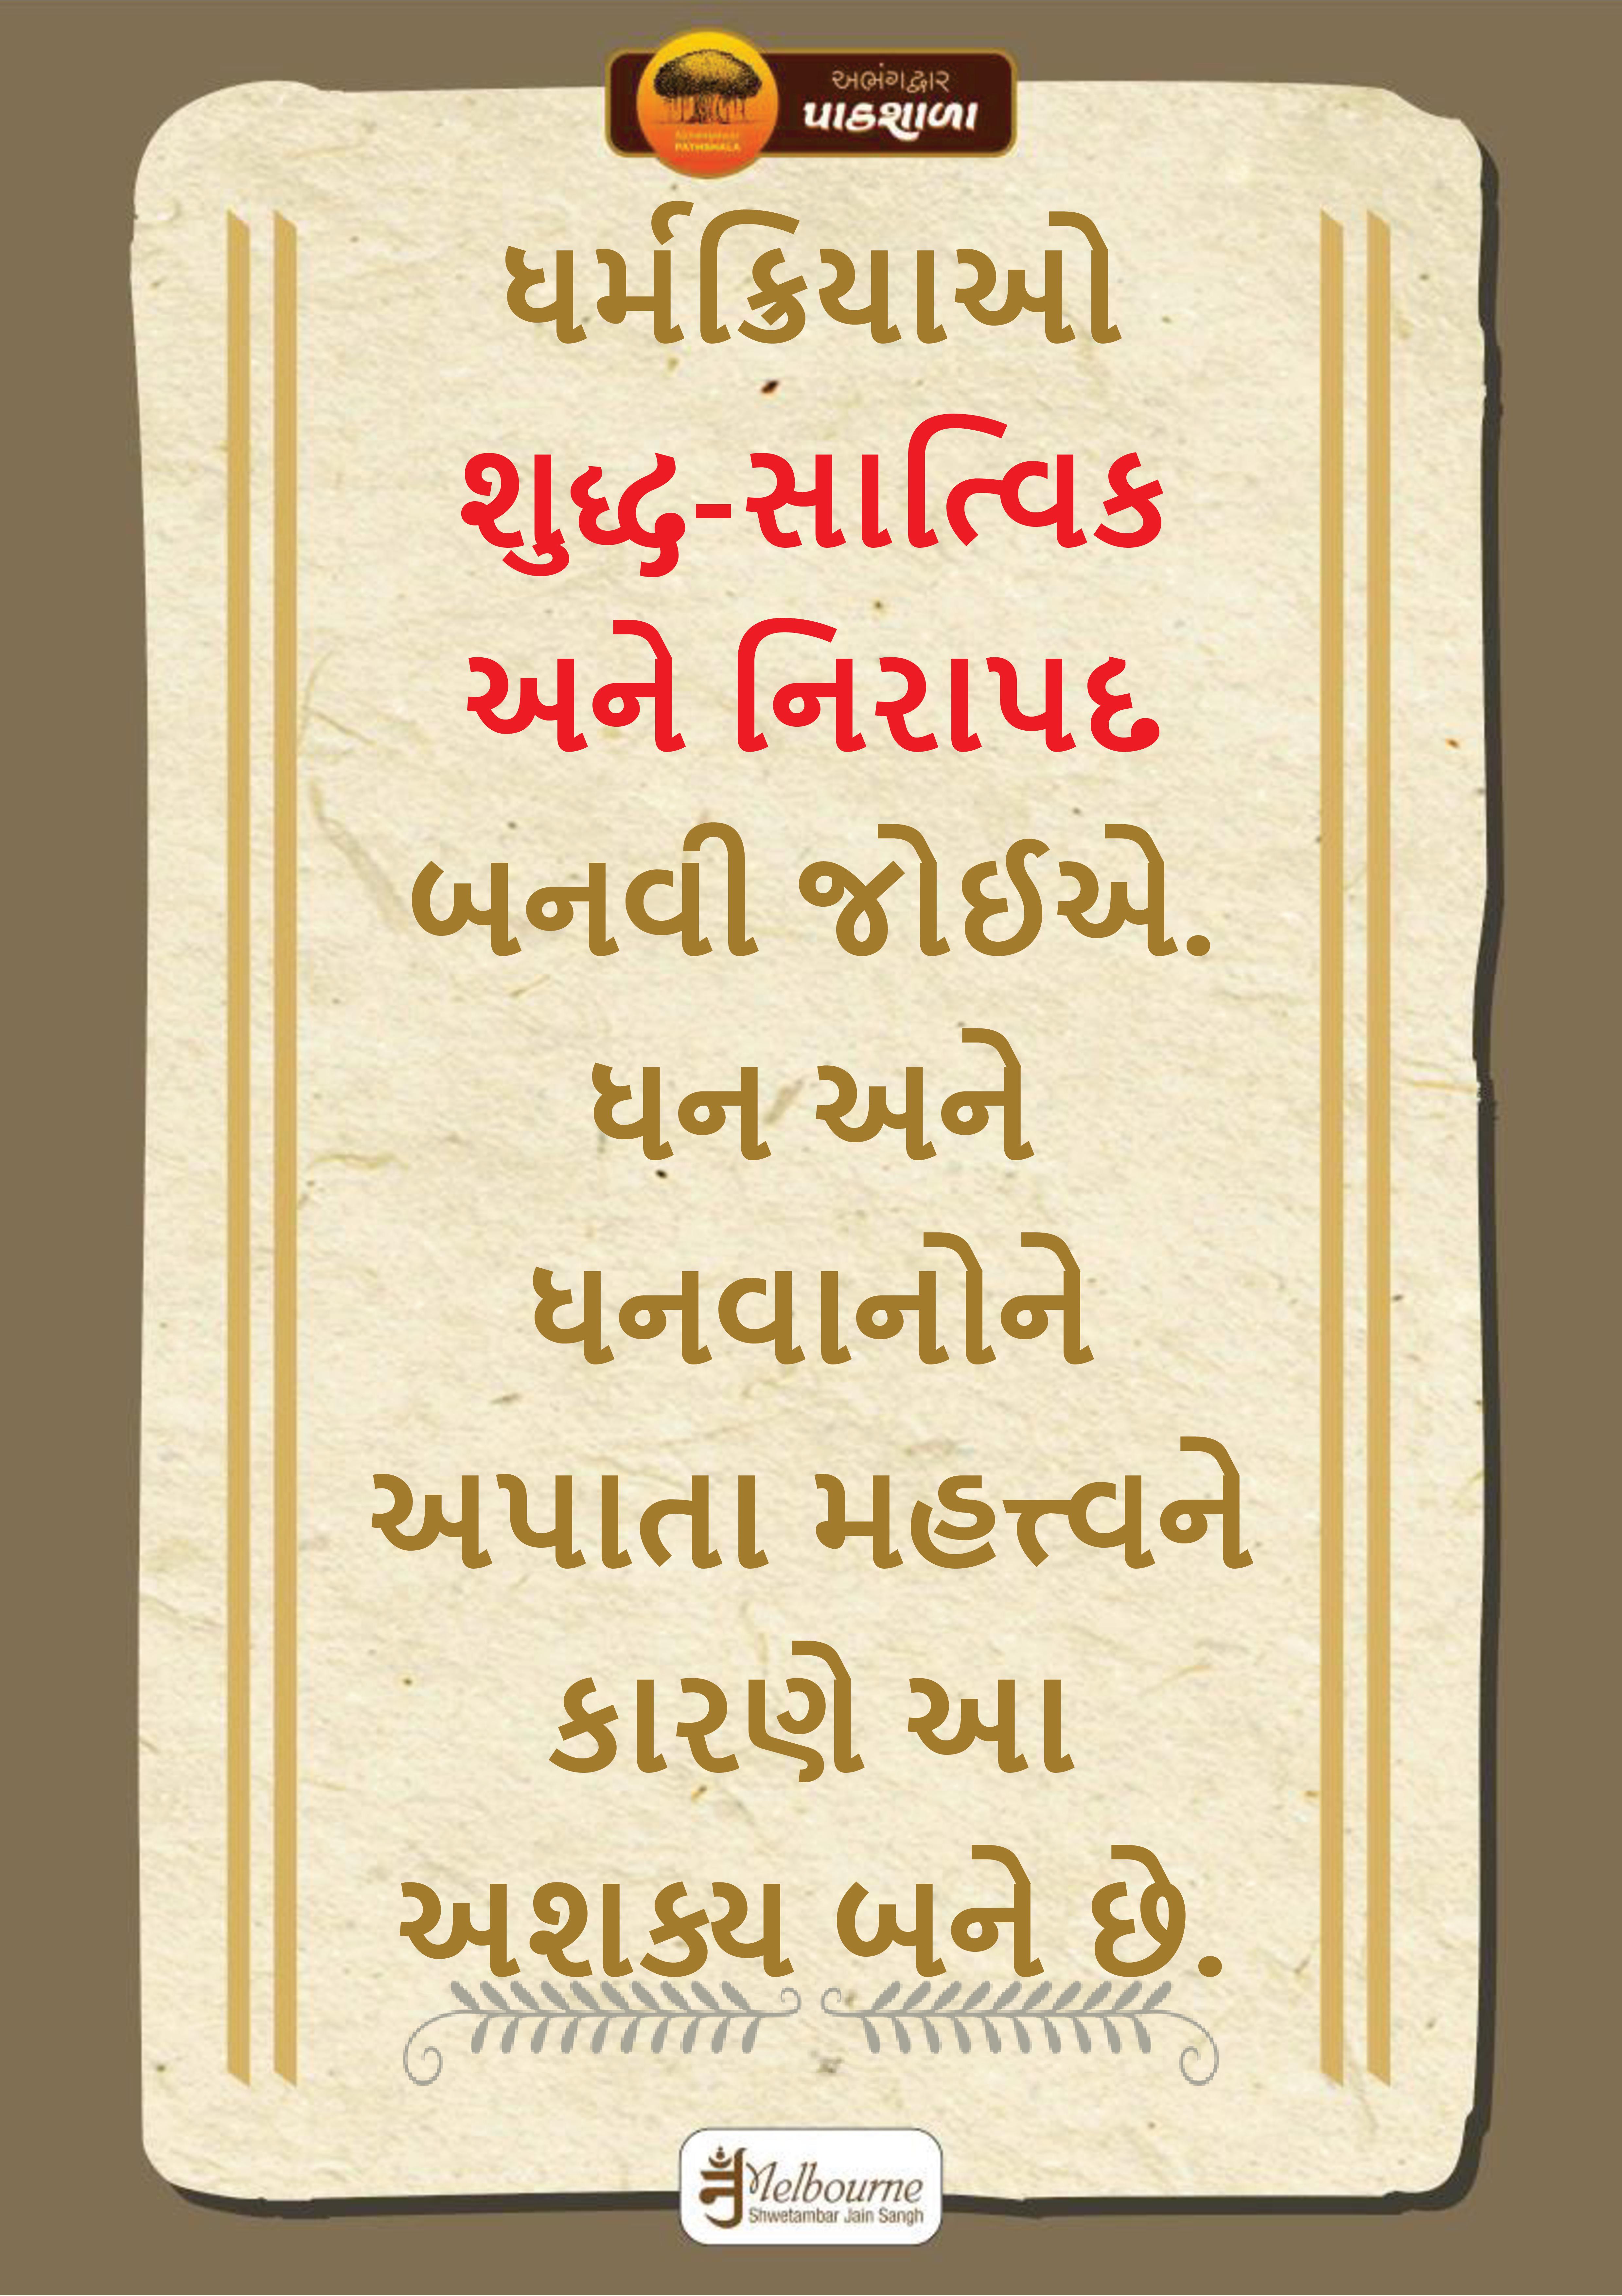 અભંગદ્વાર
પાઠશાળા
PATHSHALA
ધર્મક્રિયાઓ
શુદ્ધ-સાત્વિક
અને નિરાપદ
બનવી જોઈએ.
ધન અને
ધનવાનોને
અપાતા મહત્ત્વને
કારણે આ
અશક્ય બને છે.
Melbourne
Shwetambar Jain Sangh